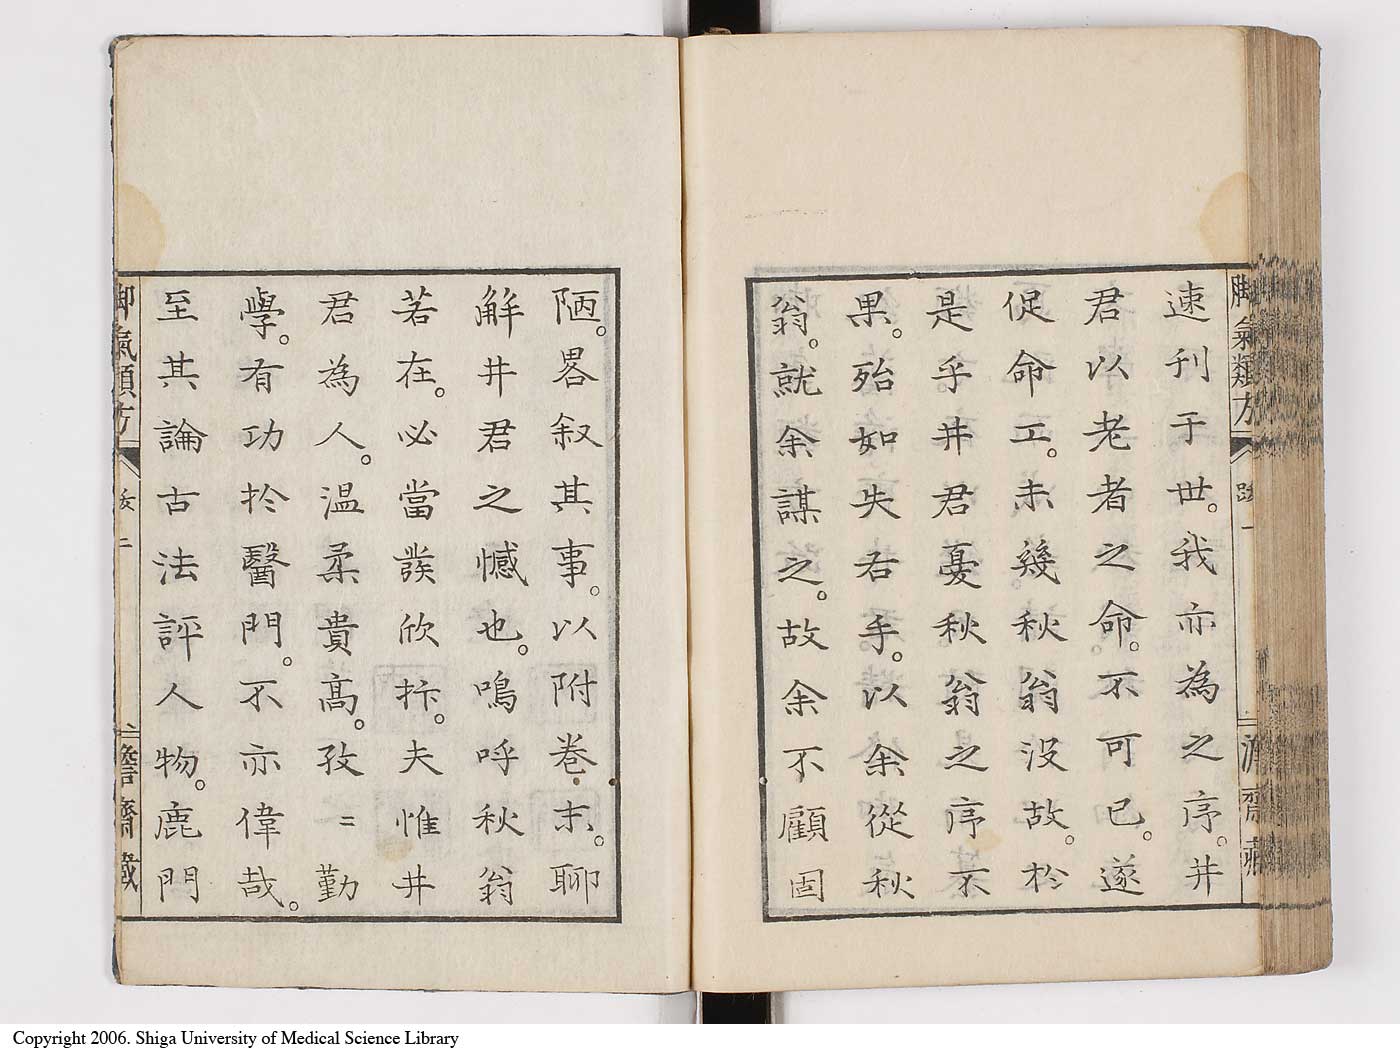 速刊于世。我亦為之序。井
君以老者之命。不可已。遂
促命工。未幾秋翁没故。於
是乎井君憂秋翁之序不
果。殆如失右手。以余從秋
翁。就余謀之。故余不顧固
陋。畧叙其事。以附卷末。聊
解井君之憾也。嗚呼秋翁
若在。必當發欣抃。夫惟井
君為人。温柔貴高。孜〻勤
學。有功於醫門。不亦偉哉。
至其論古法評人物。鹿門
脚氣類方 跋 一
脚氣類方 跋 二 二詹齋藏
Copyright 2006. Shiga University of Medical Science Library